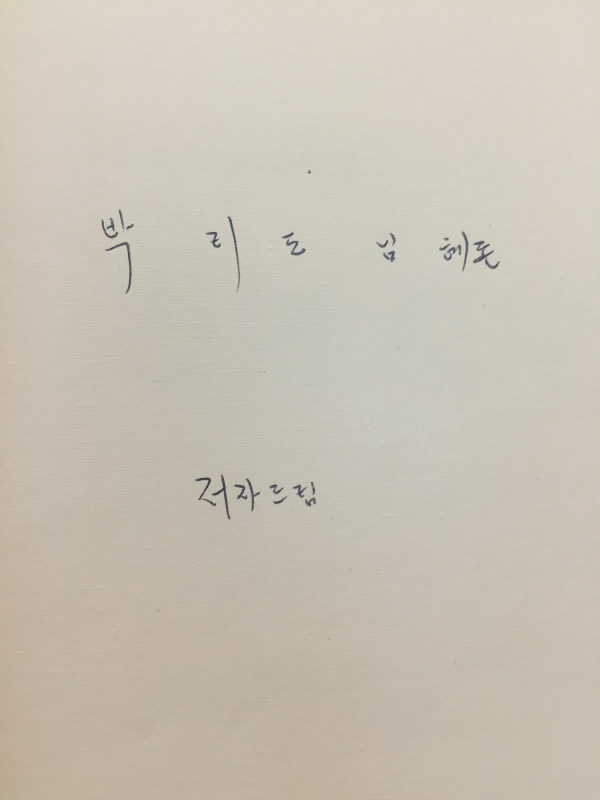 박 리 도 님 혜존
저자드림